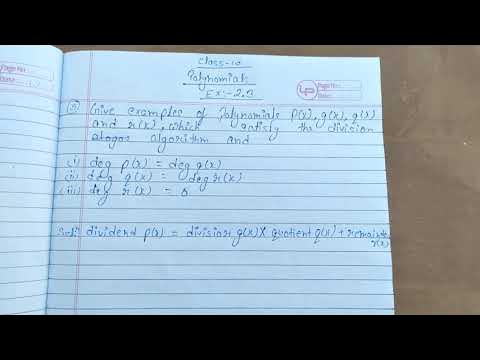 Page No:
Date:
Class-10
Polynomials
Ex:-2.3
Page No:
Date:
⑤ Give examples of Polynomials P(x), g(x), q(x)
and r(x), which satisfy the division
algorithm and
(i) deg p(x) = deg q(x)
(ii) deg q(x) = deg r(x)
(iii) deg r(x) = 0
Sol: dividend p(x) = divisior g(x) X quotient q(x) + remainder
r(x)